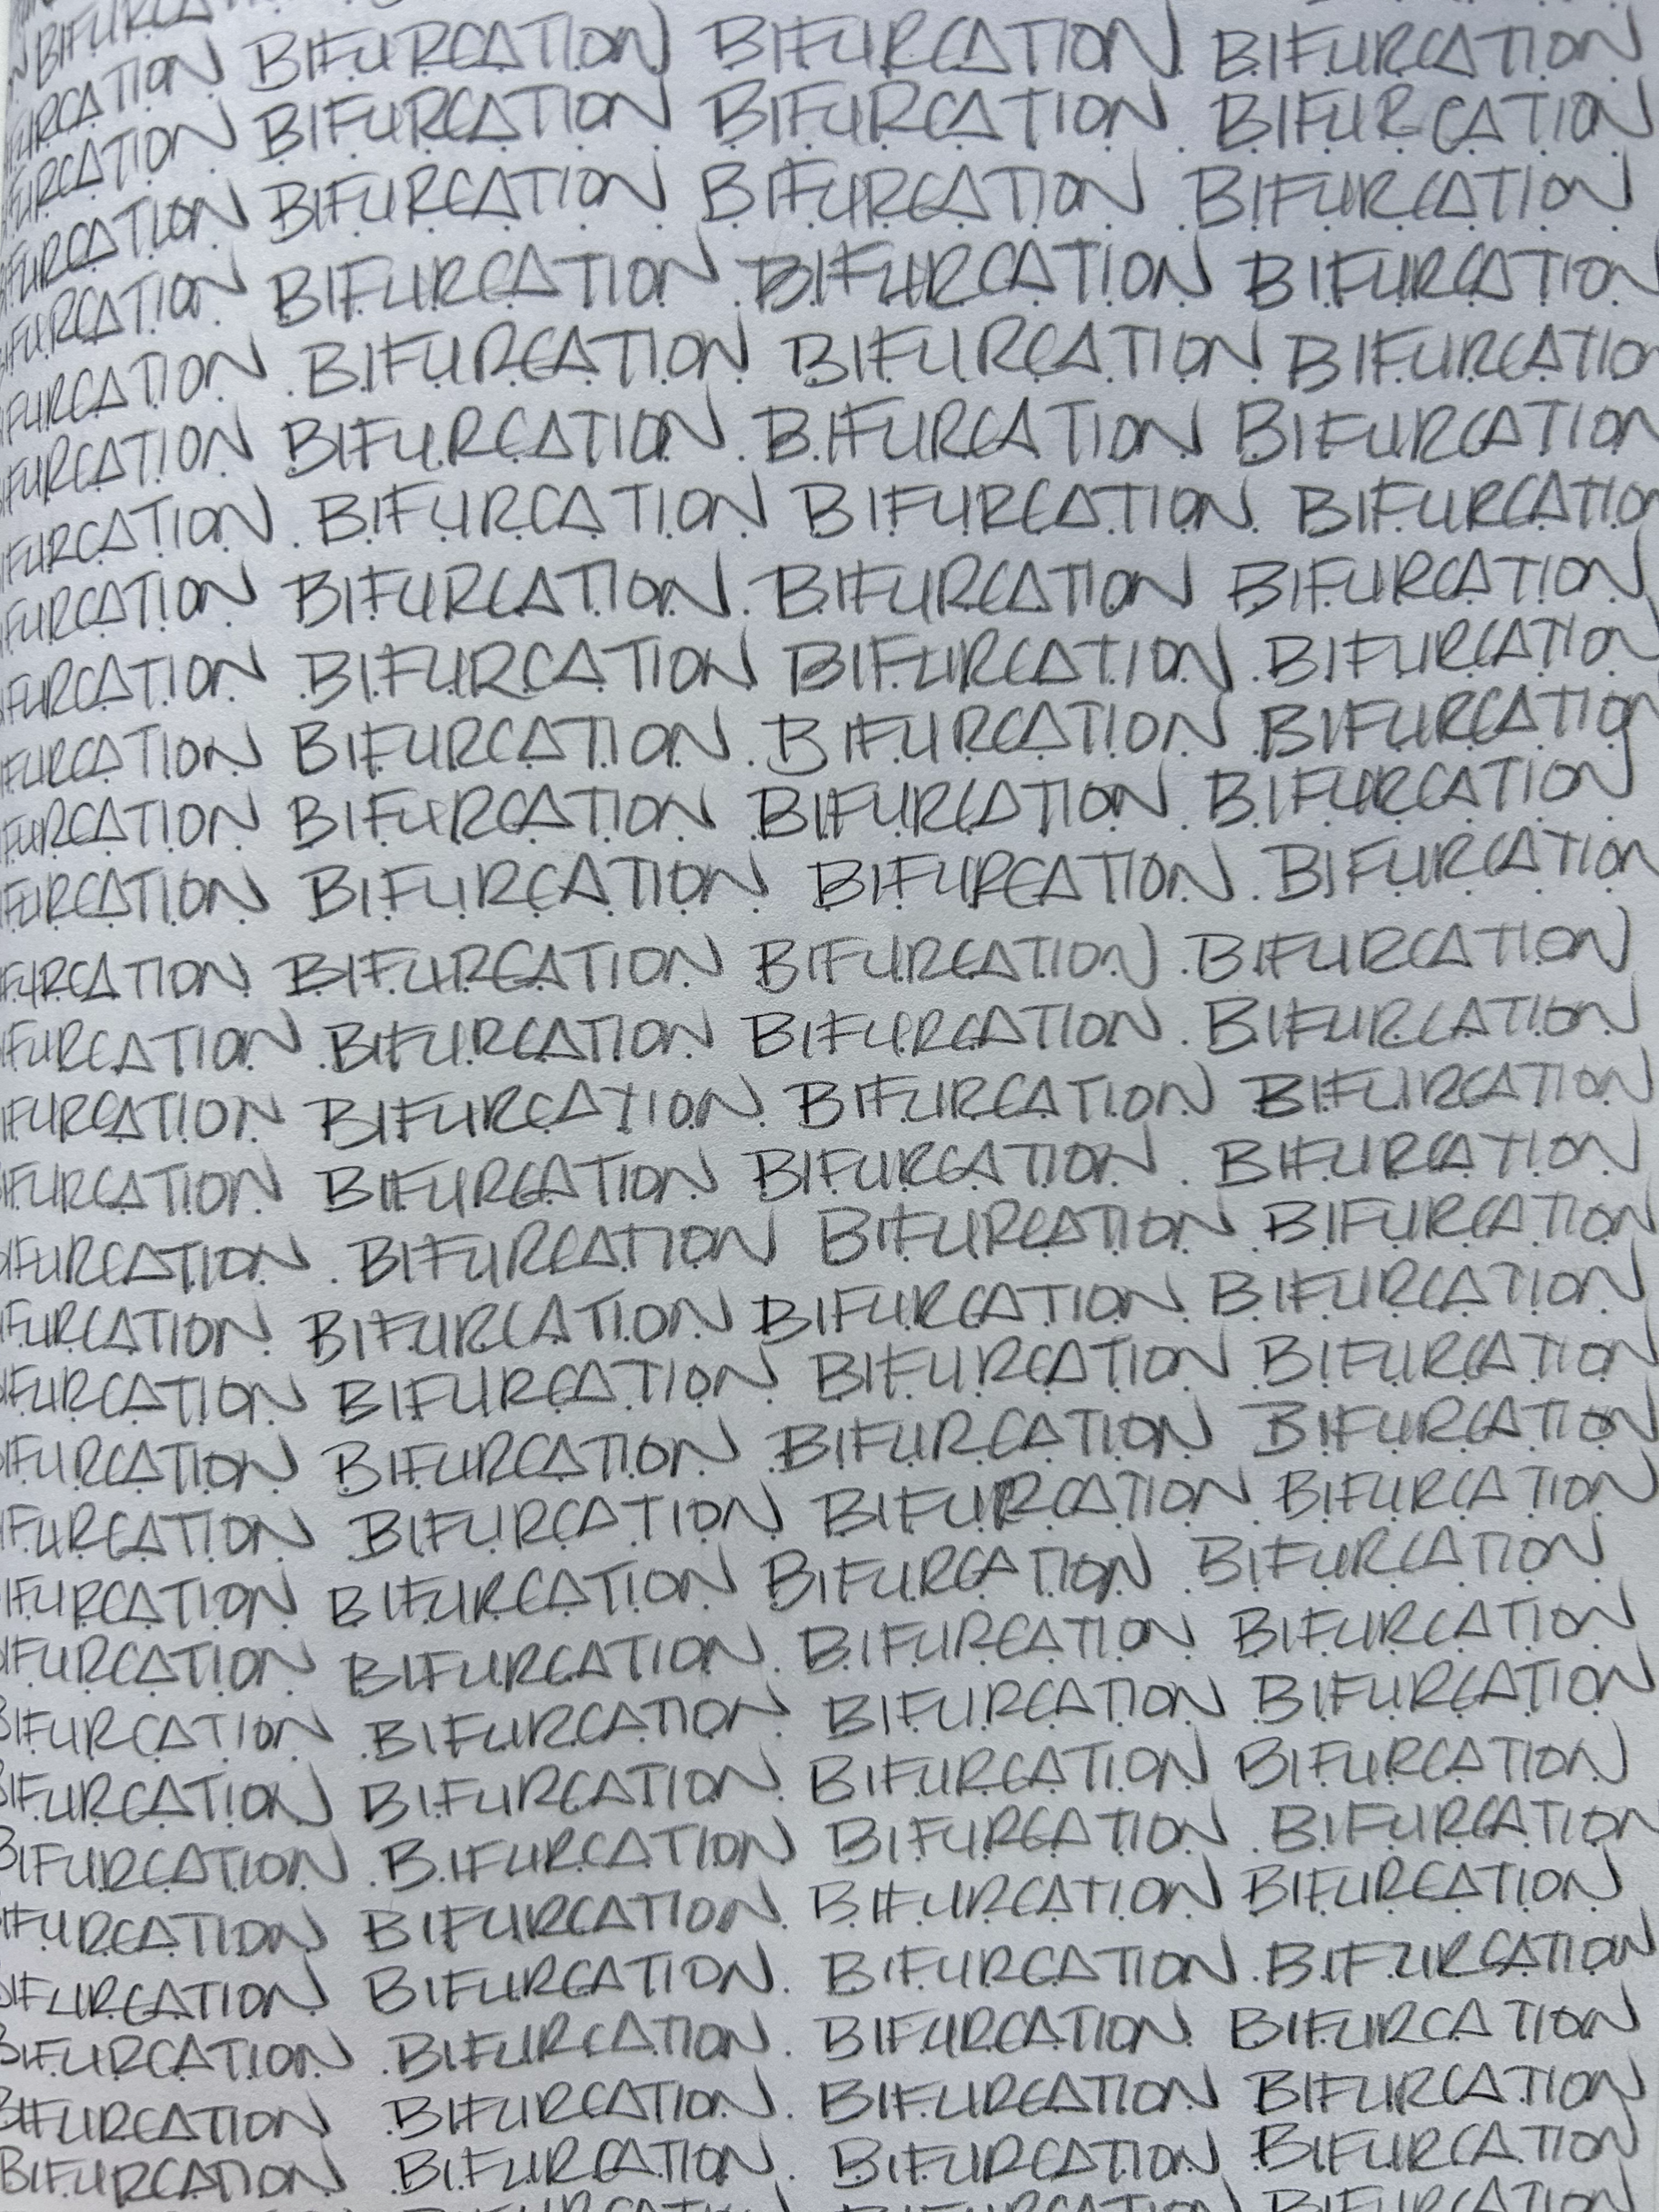 BIFURCA
URCATION BIFURCATION BIFURCATION BIFURCATION
FURCATION BIFURCATION BIFURCATION BIFURCATION
FURCATION BIFURCATION BIFURCATION BIFURCATION
IFURCATION BIFURCATION BIFURCATION BIFURCATION
FURCATION BIFURCATION BIFURCATION BIFURCATIO
IFURCATION BIFURCATION BIFURCATION BIFURCATION
IFURCATION BIFURCATION BIFURCATION BIFURCATIO
FURCATION BIFURCATION BIFURCATION BIFURCATION
FURCATION BIFURCATION BIFURCATION BIFURCATION
IFURCATION BIFURCATION BIFURCATION BIFURCATION
FURCATION BIFURCATION BIFURCATION BIFURCATION
IFURCATION BIFURCATION BIFURCATION BIFURCATION
IFURCATION BIFURCATION BIFURCATION BIFURCATION
IFURCATION BIFURCATION BIFURCATION BIFURCATION
IFURCATION BIFURCATION BIFURCATION BIFURCATION
IFURCATION BIFURCATION BIFURCATION BIFURCATION
BIFURCATION BIFURCATION BIFURCATION BIFURCATION
IFURCATION BIFURCATION BIFURCATION BIFURCATION
IFURCATION BIFURCATION BIFURCATION BIFURCATION
IFURCATION BIFURCATION BIFURCATION BIFURCATION
IFURCATION BIFURCATION BIFURCATION BIFURCATION
IFURCATION BIFURCATION BIFURCATION BIFURCATION
BIFURCATION BIFURCATION BIFURCATION BIFURCATION
BIFURCATION BIFURCATION BIFURCATION BIFURCATION
BIFURCATION BIFURCATION BIFURCATION BIFURCATION
BIFURCATION BIFURCATION BIFURCATION BIFURCATION
IFURCATION BIFURCATION BIFURCATION BIFURCATION
BIFURCATION BIFURCATION BIFURCATION BIFURCATION
BIFURCATION BIFURCATION BIFURCATION BIFURCATION
BIFURCATION BIFURCATION BIFURCATION BIFURCATION
BIFURCATION BIFURCATION BIFURCATION BIFURCATION
BIFURCATION BIFURCATION BIFURCATION